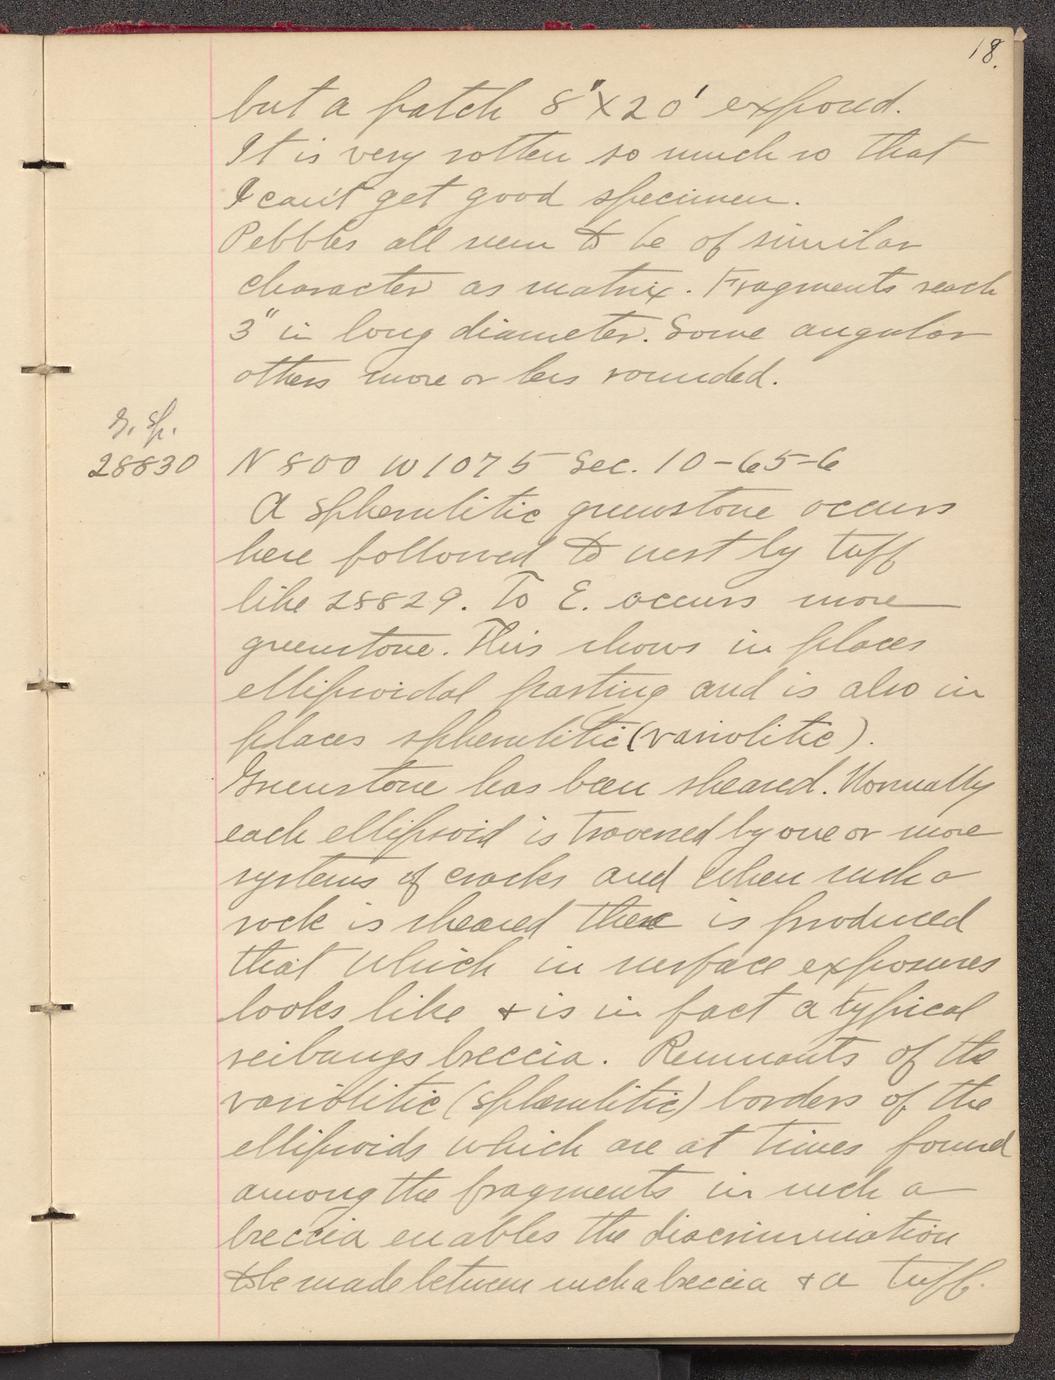 18.
but a patch 8"X20' exposed.
It is very rotten so much so that
I can't get good specimen.
Pebbles all seem to be of similar
character as matrix. Fragments reach
3" in long diameter. Some angular
others more or less rounded.
Sp.
28830 N 800 W 1075 Sec. 10-65-6
A Spherulitic greenstone occurs
here followed to west by tuff
like 28829. To E. occurs more
greenstone. This shows in places
ellipsoidal parting and is also in
places spherulitic (variolitic).
Greenstone has been sheared. Normally
each ellipsoid is traversed by one or more
systems of cracks and when such a
rock is sheared there is produced
that which in surface exposures
looks like & is in fact a typical
reibungs breccia. Remnants of the
variolitic (spherulitic) borders of the
ellipsoids which are at times found
among the fragments in such a
breccia enables the discrimination
to be made between such a breccia & a tuff.